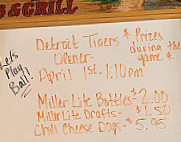 & GRILL
Let's
Play
Ball!
Detroit Tigers
Opener-
April 1st. 1:10pm
* Prizes
during the
game *
Miller Lite Bottles- $2.00
Miller Lite Drafts- $1.50
Chili Cheese Dogs- $5.95